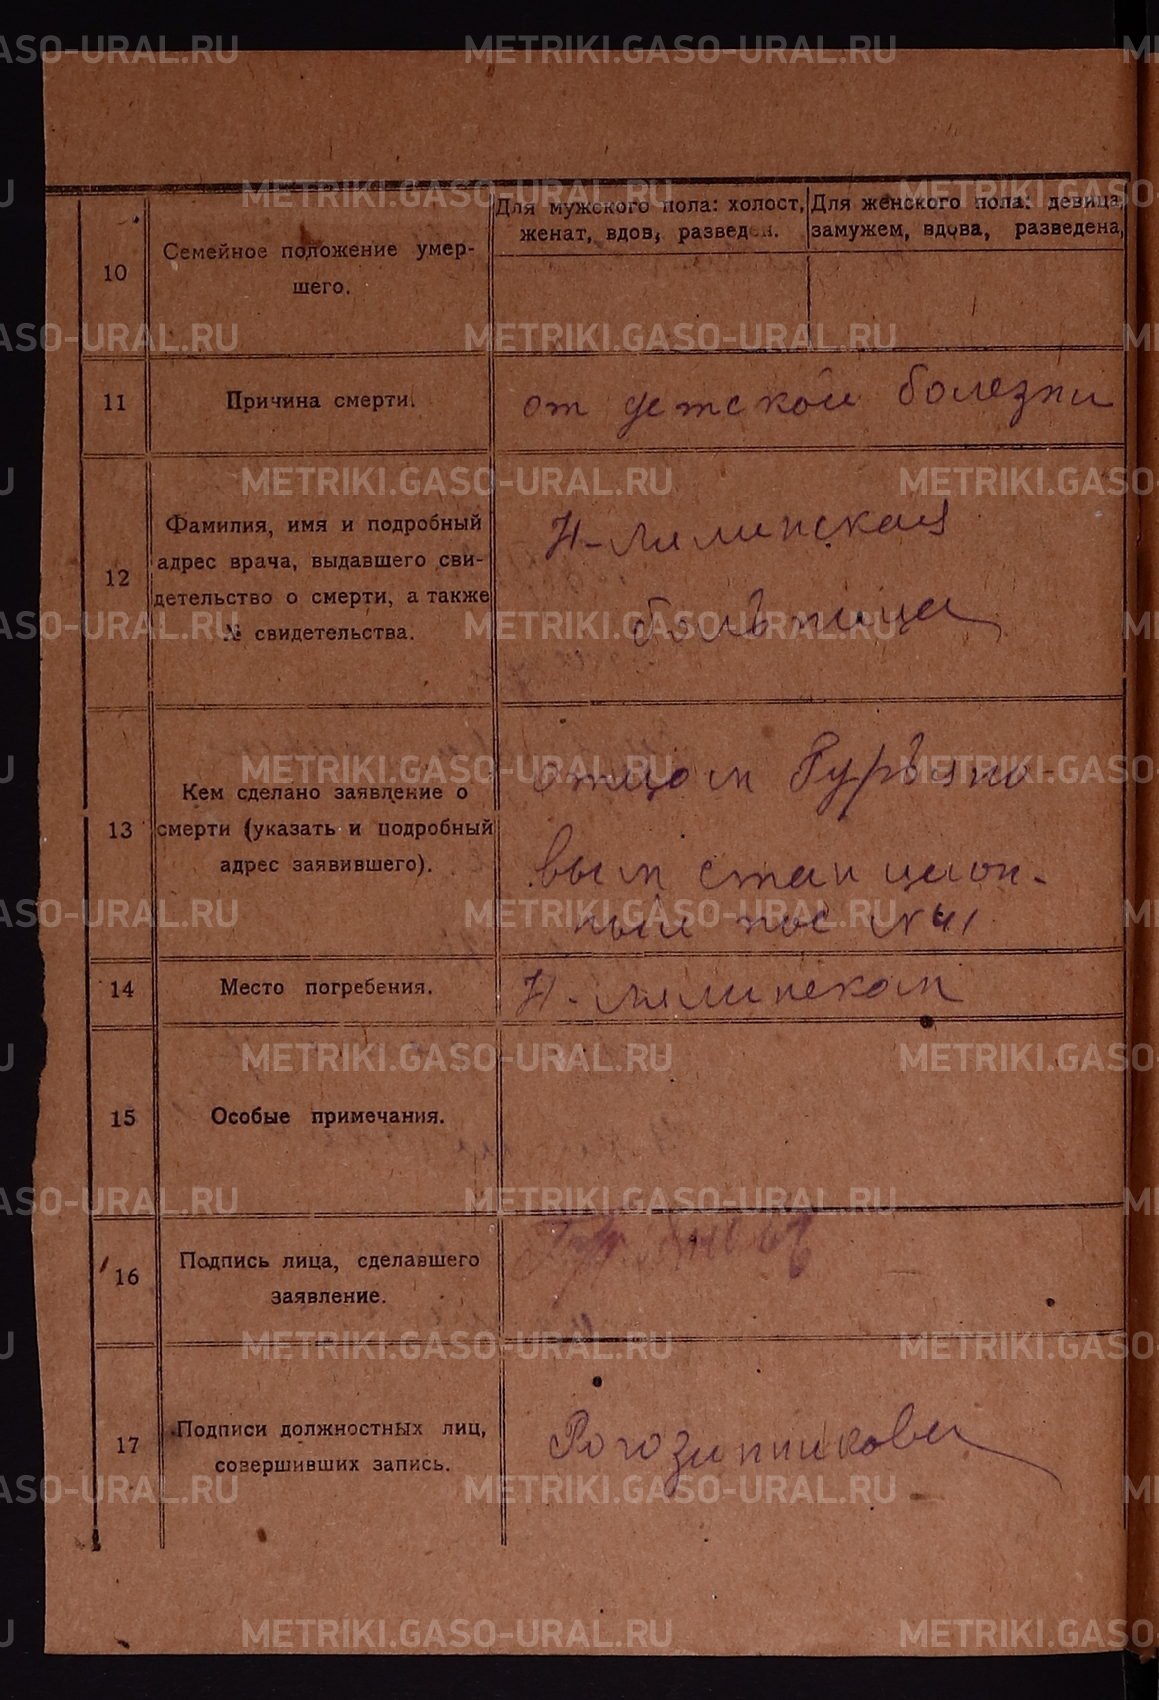 METRIKI.GASO-URAL.RU
10
Семейное положение умер-
шего.
Для мужского пола: холост,
женат, вдов, разведен.
Для женского пола: девица,
замужем, вдова, разведена,
11
Причина смерти.
от детской болезни
12
Фамилия, имя и подробный
адрес врача, выдавшего сви-
детельство о смерти, а также
№ свидетельства.
Н-Лялинская
больница
13
Кем сделано заявление о
смерти (указать и подробный
адрес заявившего).
отцом Гурьяно-
вым станцион-
ный пос N 41
14
Место погребения.
Н-Лялинском
15
Особые примечания.
16
Подпись лица, сделавшего
заявление.
17
Подписи должностных лиц,
совершивших запись.
Рогозинникова